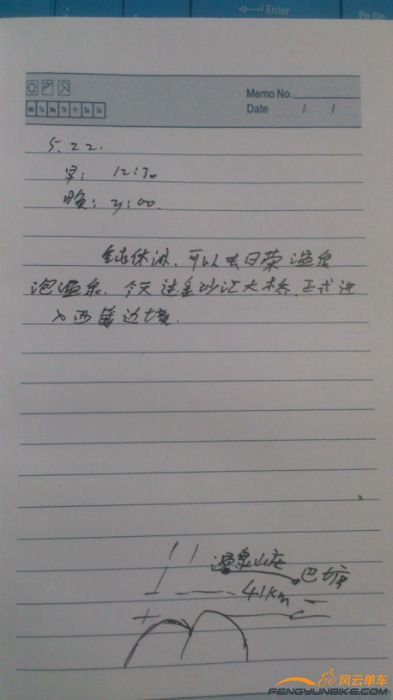 Enter
Pg Dn
Memo No.
Date / /
Mo Tu We Th Fr Sa Su
5.22.
早: 12:30
晚: 21:00.
休闲.可以去日荣温泉
泡温泉.今天过金沙江大桥,正式进
入西藏边境.
温泉山庄
巴塘
41km
风云单车
FENGYUNBIKE.COM